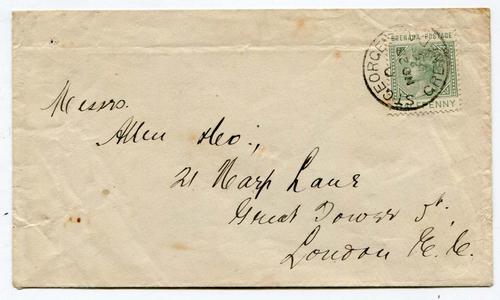 GRENADA POSTAGE
ST GEORGE'S
NO 2
GRENADA
HALFPENNY
Messrs.
Allen &Co:,
21 Harp Lane
Great Tower St,
London E.C.